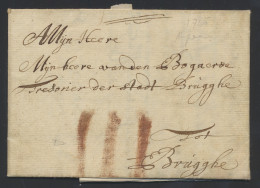 Mijn Heere
Mijn heere van den Bogaerde
Tresorier der stadt Brugghe
Tot
Brugghe